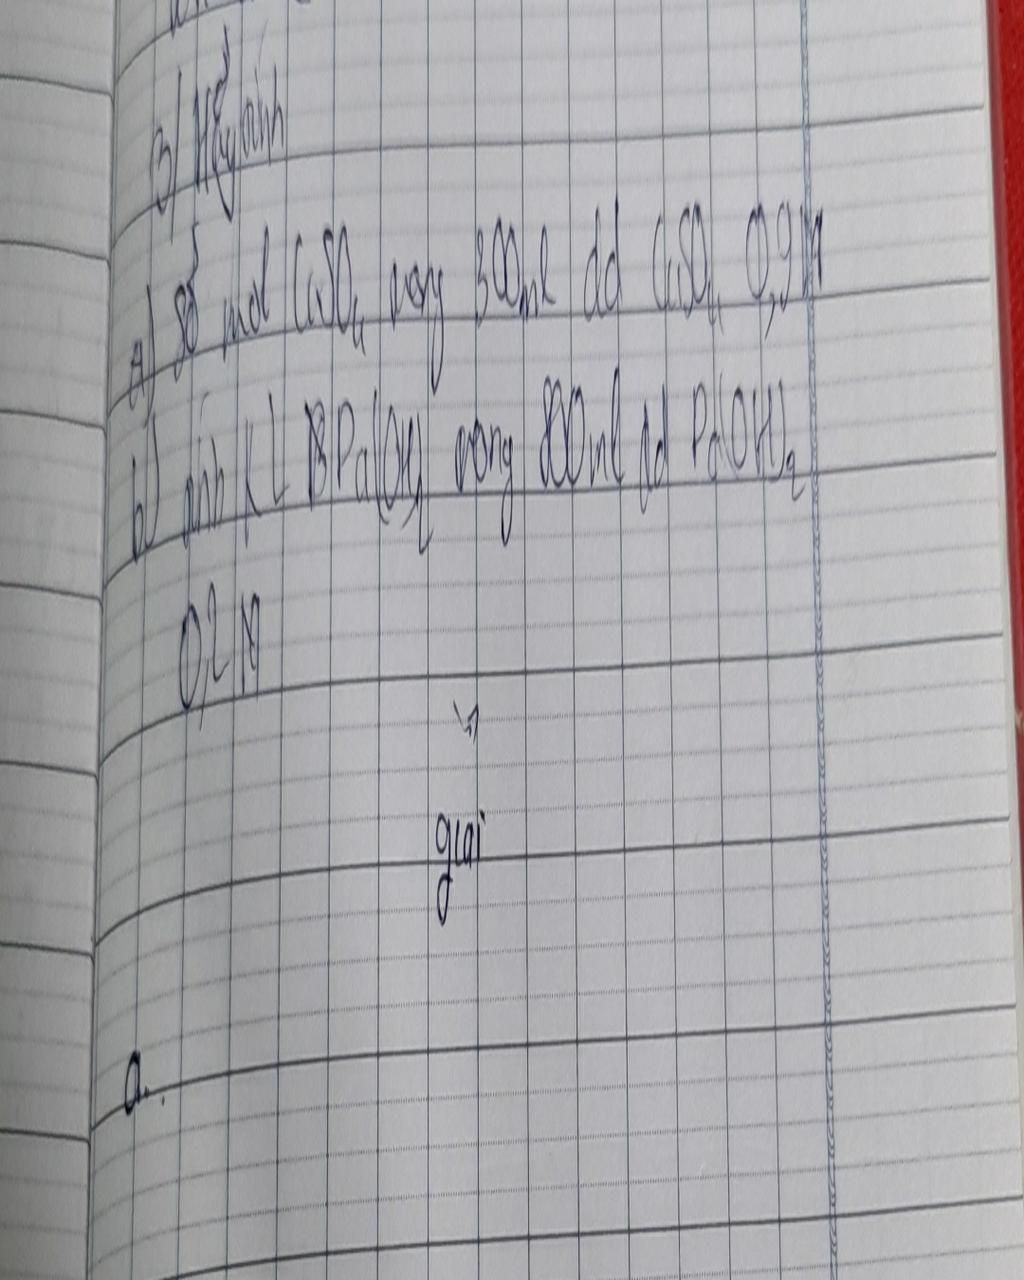 3/ Hãy tính
a) số mol CuSO4 trong 300ml dd CuSO4 0,9M
b) tính KL Ba(OH)2 trong 800ml dd Ba(OH)2
0,2 M
giải
a.